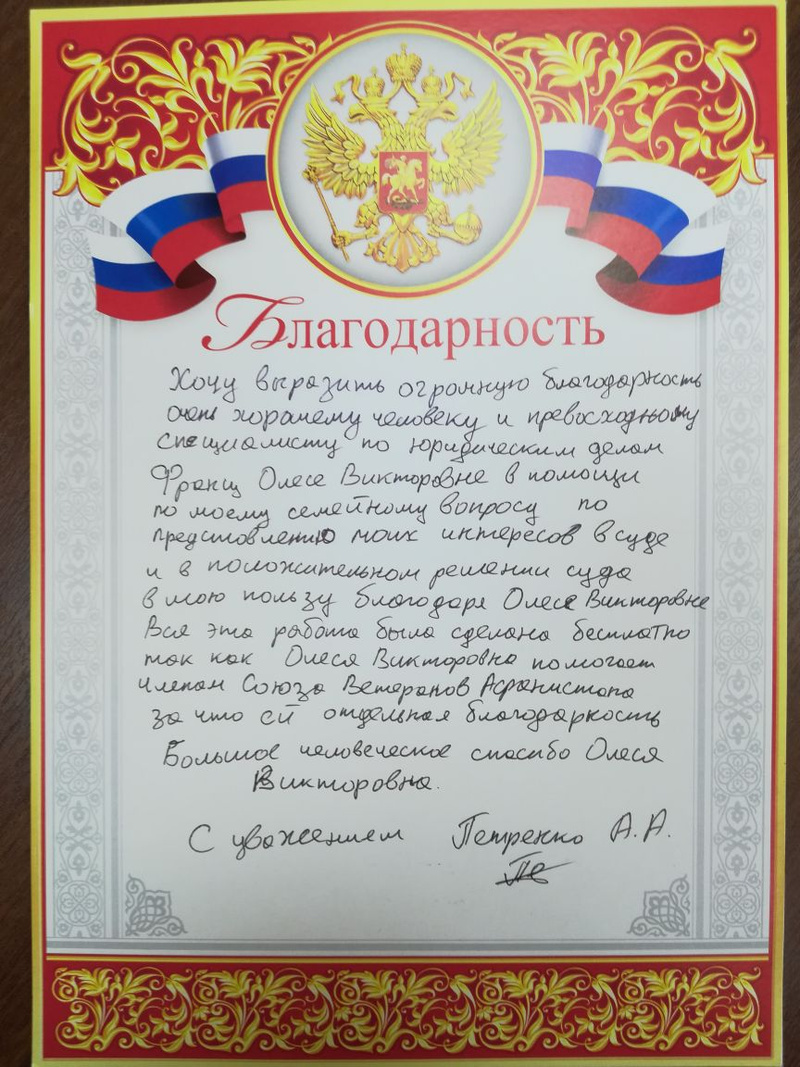 Благодарность
Хочу выразить огромную благодарность
очень хорошему человеку и превосходному
специалисту по юридическим делам
Франц Олесе Викторовне в помощи
по моему семейному вопросу по
предстовлению моих интересов в суде
и в положительном решении суда
в мою пользу благодаря Олесе Викторовне
Вся эта работа была сделана бесплатно
так как Олеся Викторовна помогает
членам Союза Ветеранов Афганистана
за что ей отдельная благодарность
Большое человеческое спасибо Олеся
Викторовна.
С уважением Петренко А.А.